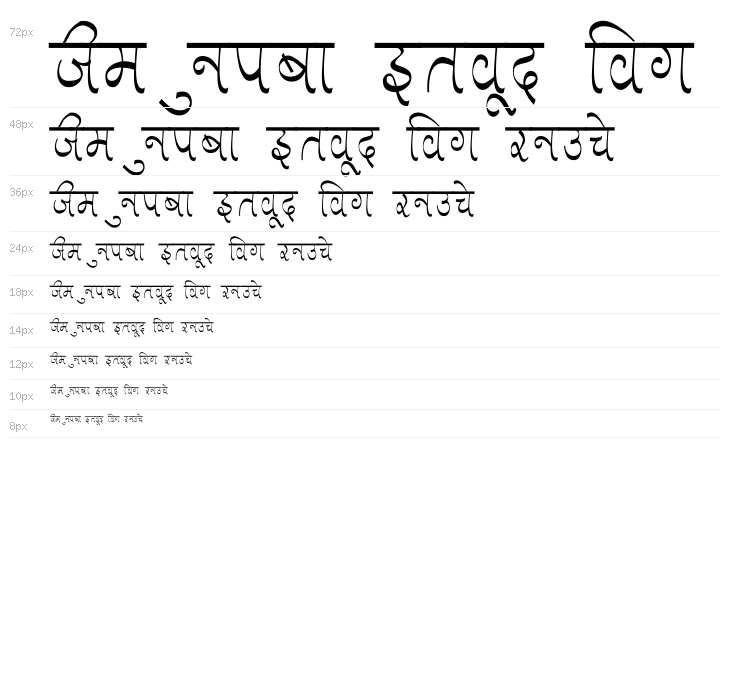 72px जीम ुनपबा इतवूद विग
48px जीम ुनपबा इतवूद विग रनउचे
36px जीम ुनपबा इतवूद विग रनउचे
24px जीम ुनपबा इतवूद विग रनउचे
18px जीम ुनपबा इतवूद विग रनउचे
14px जीम ुनपबा इतवूद विग रनउचे
12px जीम ुनपबा इतवूद विग रनउचे
10px जीम ुनपबा इतवूद विग रनउचे
8px जीम ुनपबा इतवूद विग रनउचे